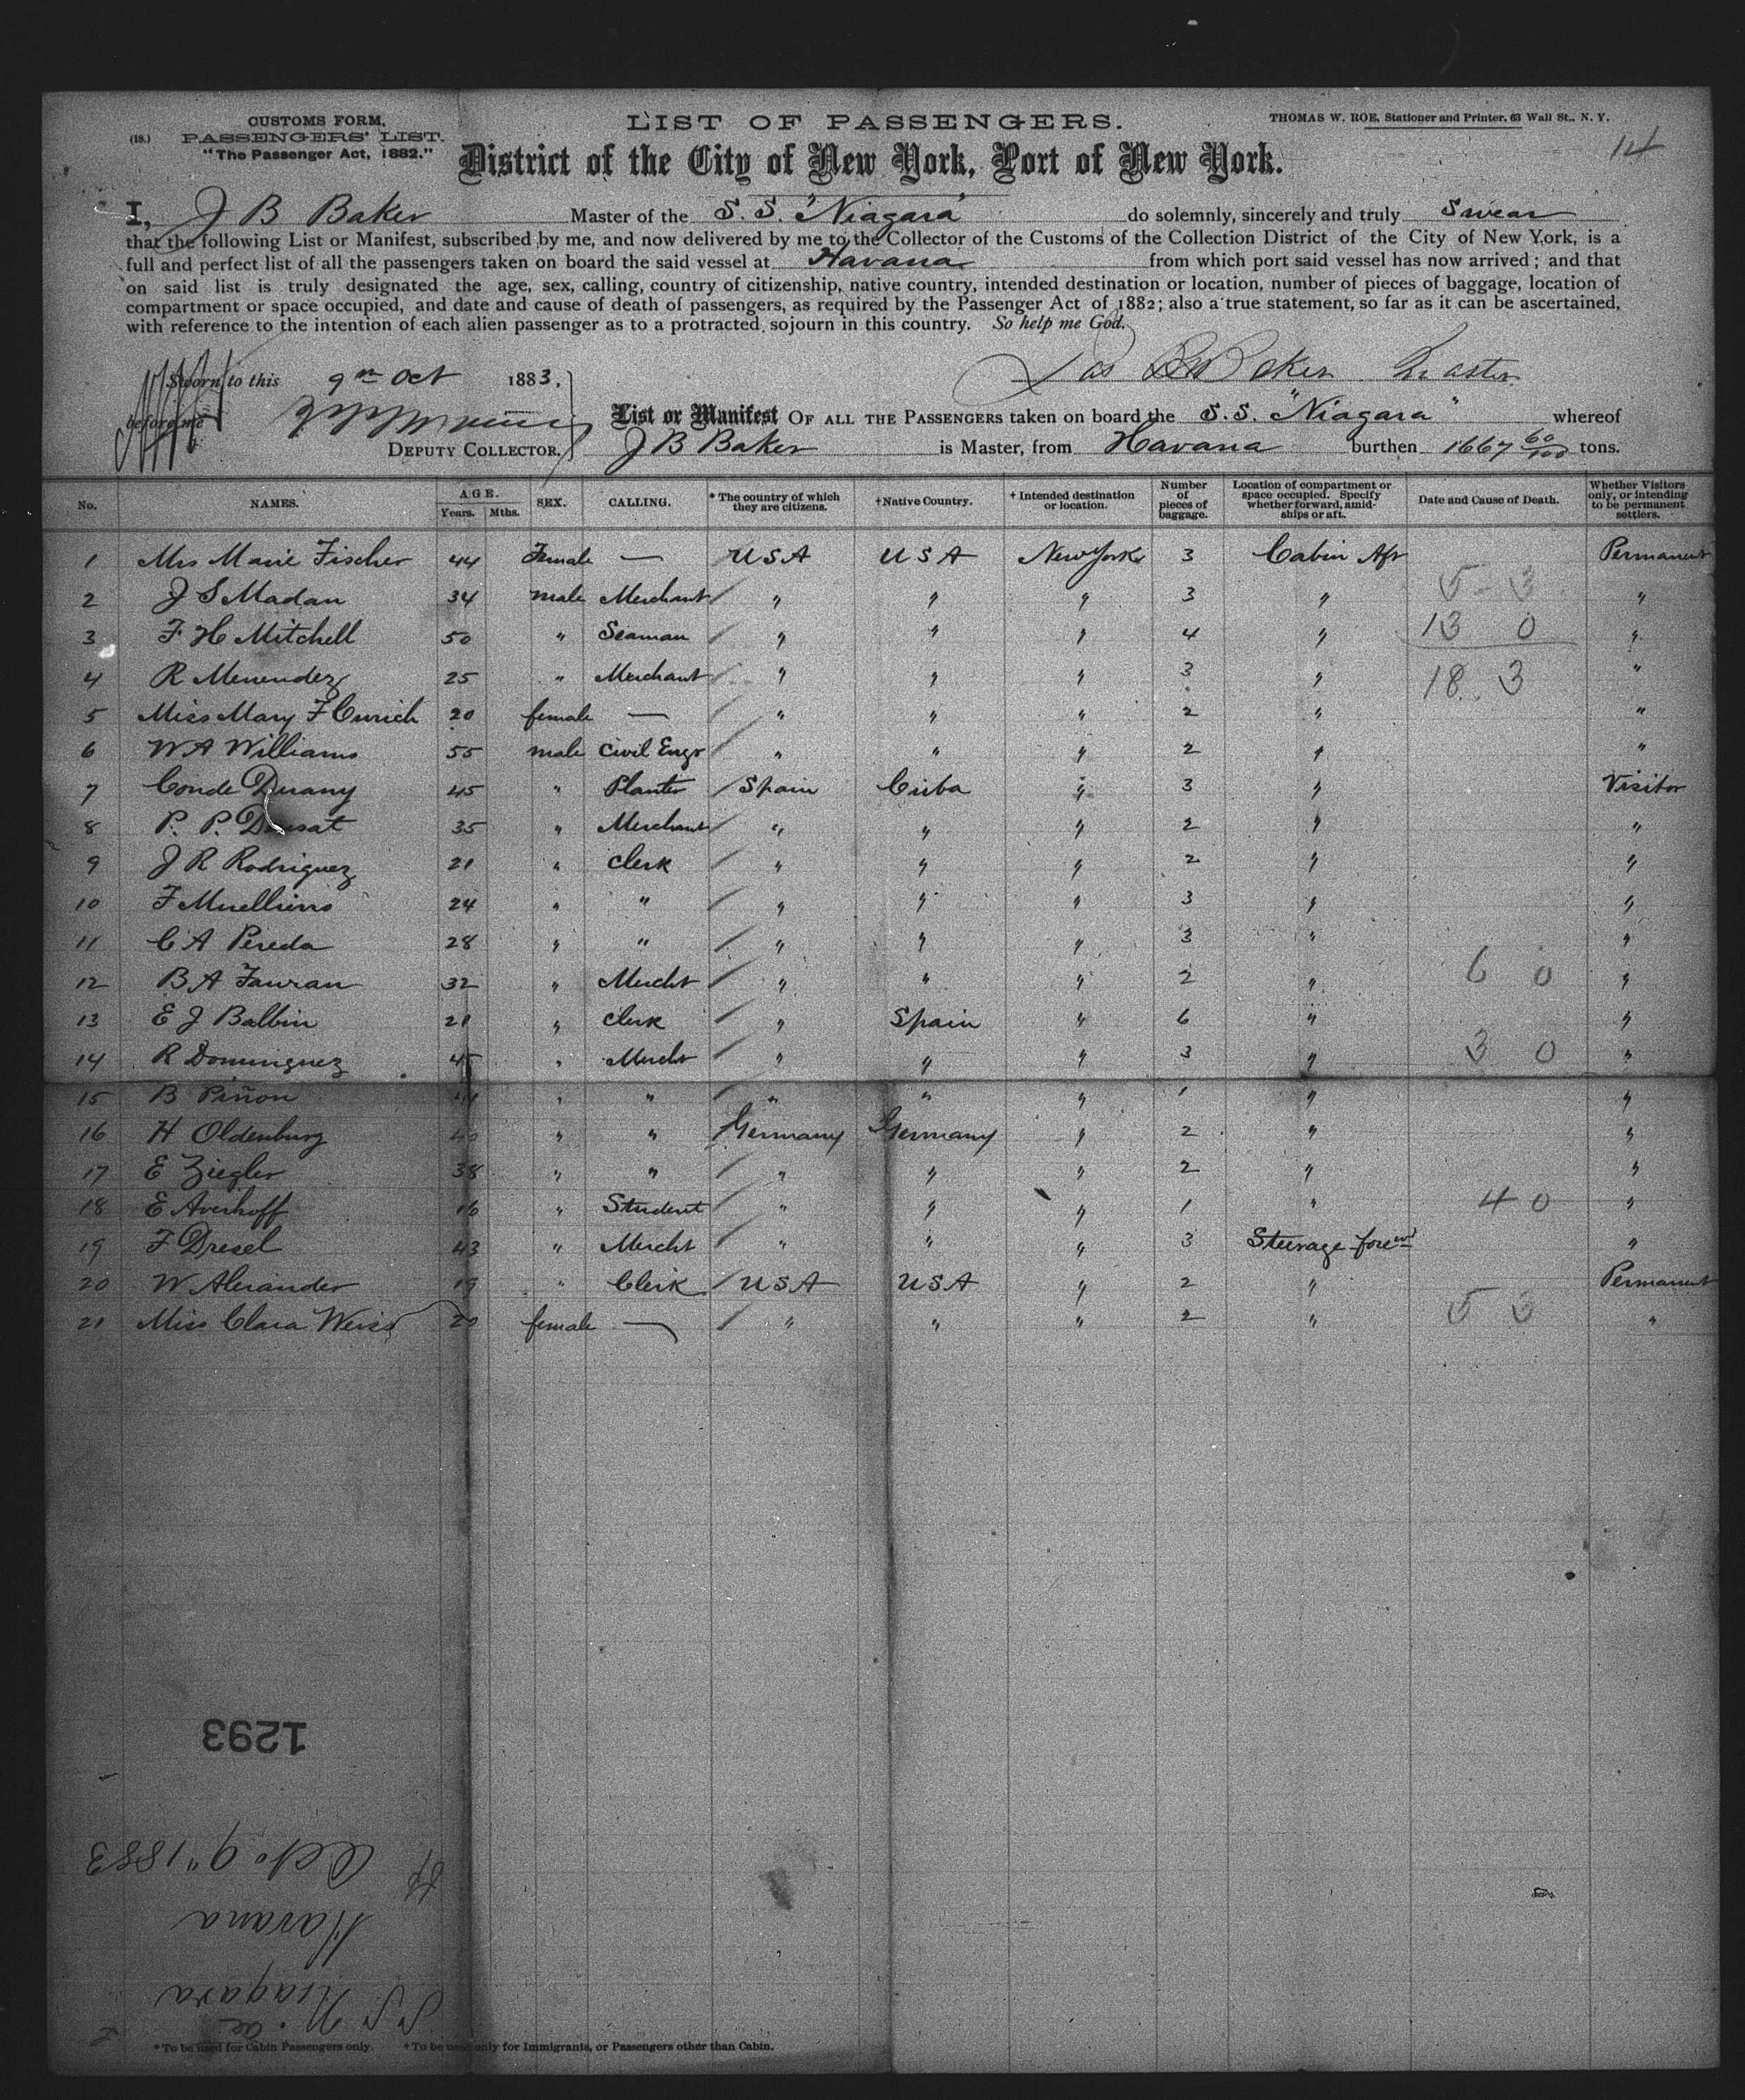 CUSTOMS FORM,
(18.) PASSENGERS' LIST.
"The Passenger Act, 1882."
LIST OF PASSENGERS.
THOMAS W. ROE, Stationer and Printer, 63 Wall St., N. Y.
14
District of the City of New York, Port of New York.
I, J B Baker Master of the S. S. "Niagara" do solemnly, sincerely and truly Swear
that the following List or Manifest, subscribed by me, and now delivered by me to the Collector of the Customs of the Collection District of the City of New York, is a
full and perfect list of all the passengers taken on board the said vessel at Havana from which port said vessel has now arrived; and that
on said list is truly designated the age, sex, calling, country of citizenship, native country, intended destination or location, number of pieces of baggage, location of
compartment or space occupied, and date and cause of death of passengers, as required by the Passenger Act of 1882; also a true statement, so far as it can be ascertained,
with reference to the intention of each alien passenger as to a protracted sojourn in this country. So help me God.
Jas B Baker Master
Sworn to this 9th Oct 1883,
before me
DEPUTY COLLECTOR.
List or Manifest OF ALL THE PASSENGERS taken on board the S. S. "Niagara" whereof
J B Baker is Master, from Havana burthen 1667 60/100 tons.
No. NAMES. AGE. Years. Mths. SEX. CALLING. * The country of which they are citizens. † Native Country. † Intended destination or location. Number of pieces of baggage. Location of compartment or space occupied. Specify whether forward, amidships or aft. Date and Cause of Death. Whether Visitors only, or intending to be permanent settlers.
1 Mrs Marie Fischer 44 Female — USA USA New York 3 Cabin Aft Permanent
2 J S Madan 34 male Merchant " " " 3 " 5 - 3 "
3 F H Mitchell 50 " Seaman " " " 4 " 13 0 "
4 R Menendez 25 " Merchant " " " 3 " 18 3 "
5 Miss Mary F 20 female — " " " 2 " "
6 W A Williams 55 male Civil Engr " " " 2 " "
7 Conde Duany 45 " Planter Spain Cuba " 3 " Visitor
8 P. P. 35 " Merchant " " " 2 " "
9 J R Rodriguez 21 " Clerk " " " 2 " "
10 F 24 " " " " " 3 " "
11 C A Pereda 28 " " " " " 3 " "
12 B A Fauran 32 " Mercht " " " 2 " 6 0 "
13 E J Balbin 21 " Clerk " Spain " 6 " "
14 R Dominguez 45 " Mercht " " " 3 " 3 0 "
15 B Piñon " " " " " 1 " "
16 H Oldenburg 40 " " Germany Germany " 2 " "
17 E Ziegler 38 " " " " " 2 " "
18 E Averhoff 16 " Student " " " 1 " 4 0 "
19 F Dresel 43 " Mercht " " " 3 Steerage forewd "
20 W Alexander 19 " Clerk USA USA " 2 " Permanent
21 Miss Clara Weiss 20 female — " " " 2 " 5 3 "
1293
Octo 9" 1883
Havana
S S Niagara
* To be used for Cabin Passengers only. † To be used only for Immigrants, or Passengers other than Cabin.